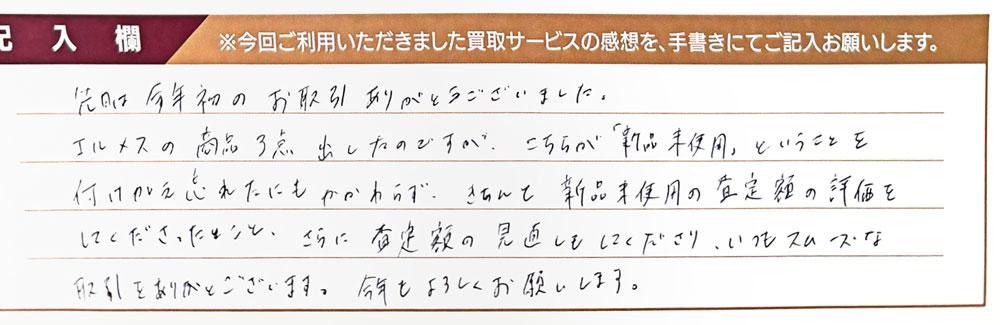 記入欄
※今回ご利用いただきました買取サービスの感想を、手書きにてご記入お願いします。
先日は今年初のお取引ありがとうございました。
エルメスの商品3点出したのですが、こちらが「新品未使用」ということを
付けがえ忘れたにもかかわらず、きちんと新品未使用の査定額の評価を
してくださったとこと、さらに査定額の見直しもしてくださり、いつもスムーズな
取引をありがとございます。今年もよろしくお願いします。